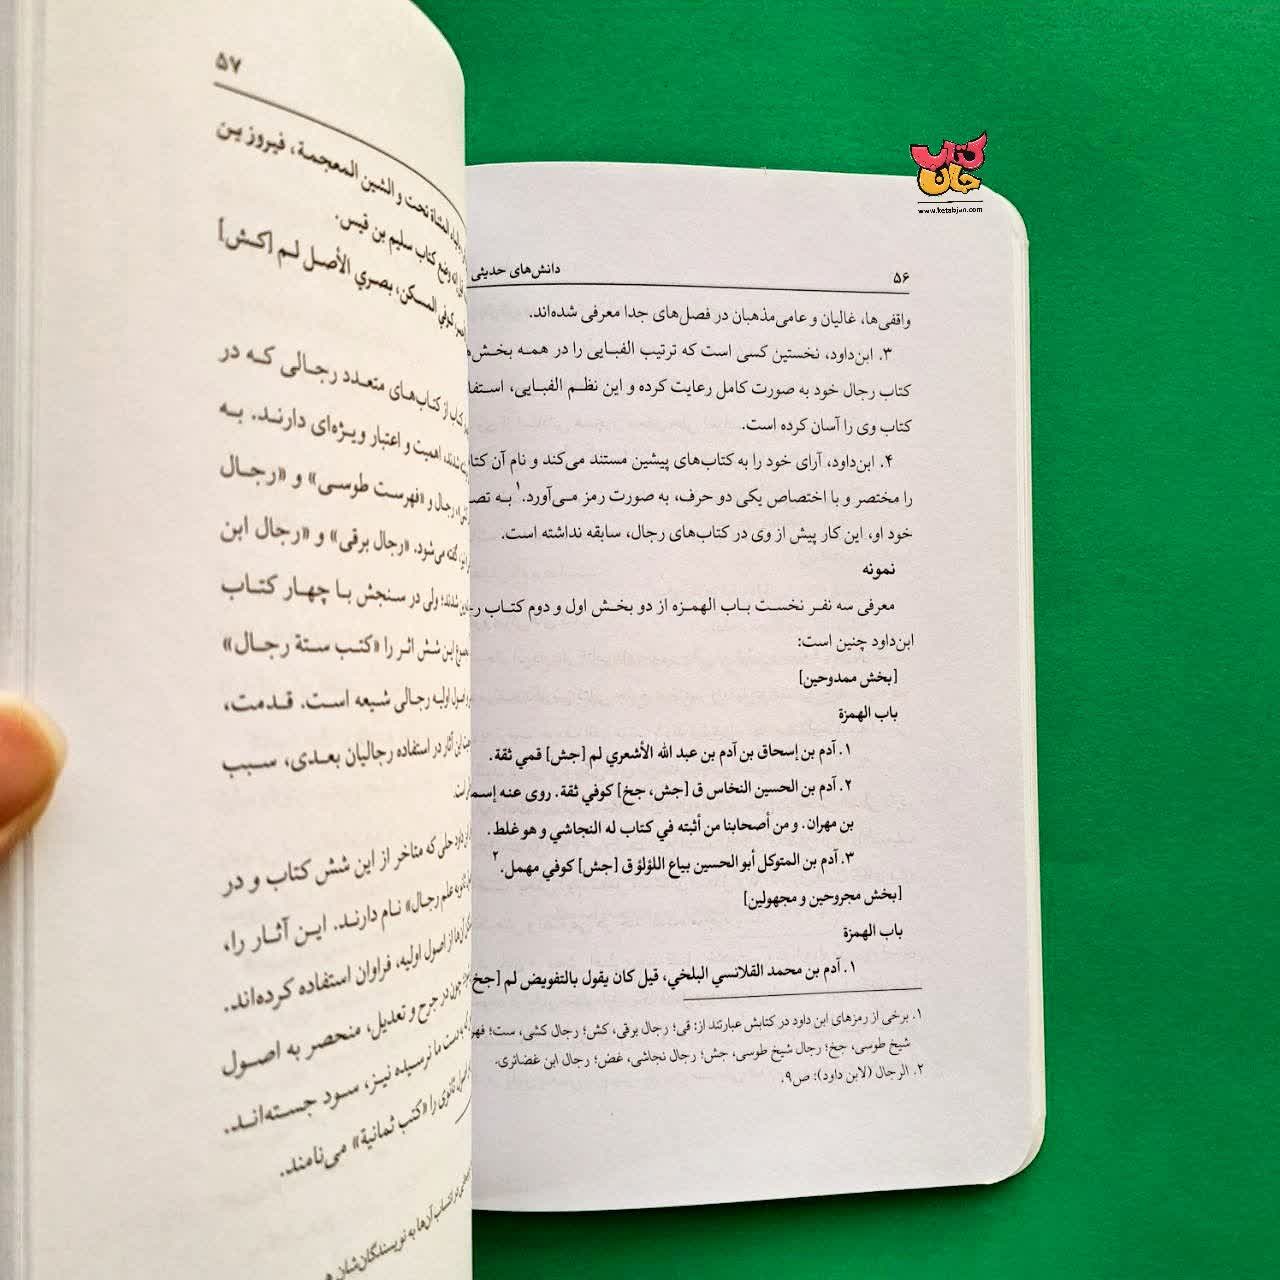 کتاب
جان
www.ketabjan.com
۵۶
دانش‌های حدیثی
واقفی‌ها، غالیان و عامی‌مذهبان در فصل‌های جدا معرفی شده‌اند.
۳. ابن‌داود، نخستین کسی است که ترتیب الفبایی را در همه
کتاب رجال خود به صورت کامل رعایت کرده و این نظم الفبایی،
کتاب وی را آسان کرده است.
۴. ابن‌داود، آرای خود را به کتاب‌های پیشین مستند می‌کند و نام آن
را مختصر و با اختصاص یکی دو حرف، به صورت رمز می‌آورد.۱ به
خود او، این کار پیش از وی در کتاب‌های رجال، سابقه نداشته است.
نمونه
معرفی سه نفر نخست باب الهمزه از دو بخش اول و دوم کتاب
ابن‌داود چنین است:
[بخش ممدوحین]
باب الهمزة
۱. آدم بن إسحاق بن آدم بن عبد الله الأشعري لم [جش] قمي ثقة.
۲. آدم بن الحسين النخاس ق [جش، جخ] كوفي ثقة. روى عنه
بن مهران. و من أصحابنا من أثبته في كتاب له النجاشي و هو غلط.
۳. آدم بن المتوكل أبو الحسين بياع اللؤلؤ ق [جش] كوفي مهمل.۲
[بخش مجروحین و مجهولین]
باب الهمزة
۱. آدم بن محمد القلانسي البلخي، قيل كان يقول بالتفويض لم [جخ
۱. برخی از رمزهای ابن داود در کتابش عبارتند از: قی؛ رجال برقی، کش؛ رجال کشی، ست؛
شیخ طوسی، جخ؛ رجال شیخ طوسی، جش؛ رجال نجاشی، غض؛ رجال ابن غضائری.
۲. الرجال (لابن داود): ص۹.
۵۷
المثناة تحت و الشين المعجمة، فيروز بن
وضع كتاب سليم بن قيس.
كوفي المسكن، بصري الأصل لم [كش]
از کتاب‌های متعدد رجالی که در
شدند، اهمیت و اعتبار ویژه‌ای دارند. به
رجال و «فهرست طوسی» و «رجال
گفته می‌شود. «رجال برقی» و «رجال ابن
شدند؛ ولی در سنجش با چهار کتاب
این شش اثر را «کتب ستة رجال»
اولیه رجالی شیعه است. قدمت،
این آثار در استفاده رجالیان بعدی، سبب
است.
داود حلی که متاخر از این شش کتاب و در
علم رجال» نام دارند. این آثار را،
از اصول اولیه، فراوان استفاده کرده‌اند.
چون در جرح و تعدیل، منحصر به اصول
دست ما نرسیده نیز، سود جسته‌اند.
ثانوی را «کتب ثمانیة» می‌نامند.
در انتساب آن‌ها به نویسندگان‌شان